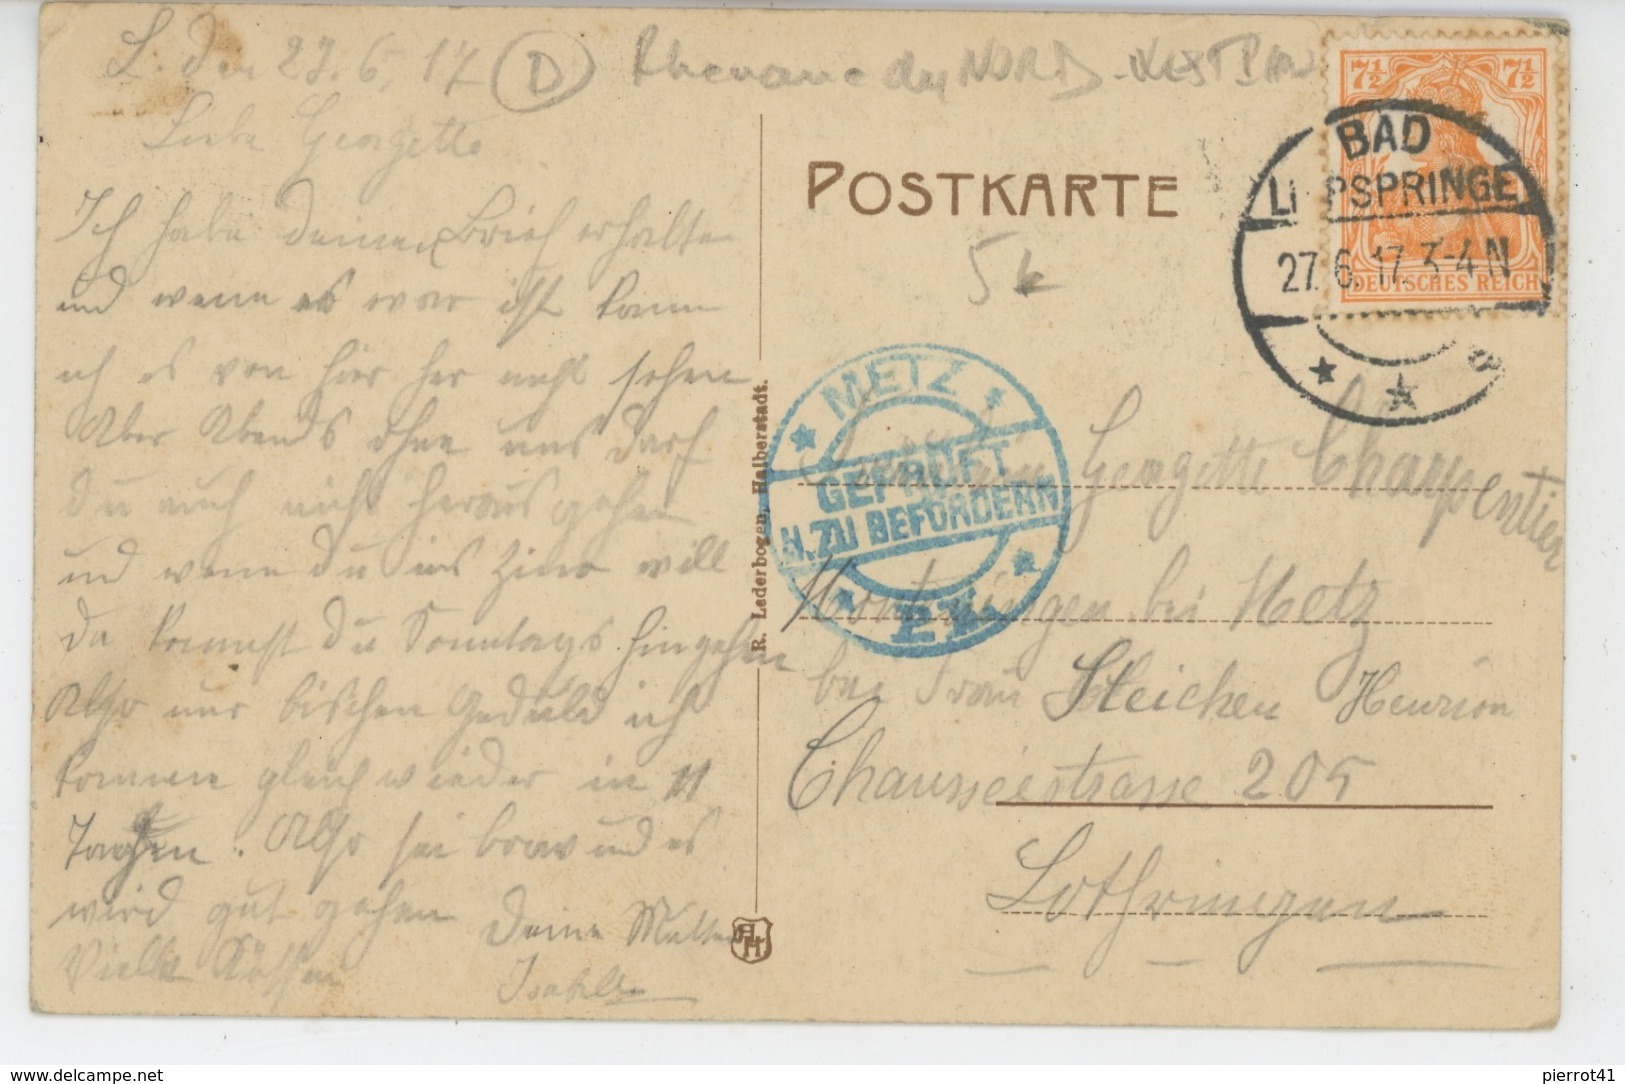 L. den 27.6.17
D
Rhenanie du NORD-WESTPHAL
Liebe Georgette
Ich habe deinen Brief erhalten
und wenn es war ist kann
ich es von hier her nicht sehen
Aber Abends ohne uns darf
du auch nicht heraus gehen
und wenn du ins will
da kannst du Sonntags hingehen
Also nur bischen Geduld ich
komme gleich wieder in 11
Tagen. Also sei brav und es
wird gut gehen
Deine Mutter
Viele Küsse
Isabelle
R. Lederbogen, Halberstadt.
POSTKARTE
5k
7½ 7½
DEUTSCHES REICH
BAD
LIPPSPRINGE
27.6.17. 3-4 N
a
METZ
GEPRÜFT
U. ZU BEFÖRDERN
Fräulein Georgette Charpentier
Montningen bei Metz
bei Frau Steichen Henrion
Chausséestrasse 205
Lothringen
delcampe.net
pierrot41